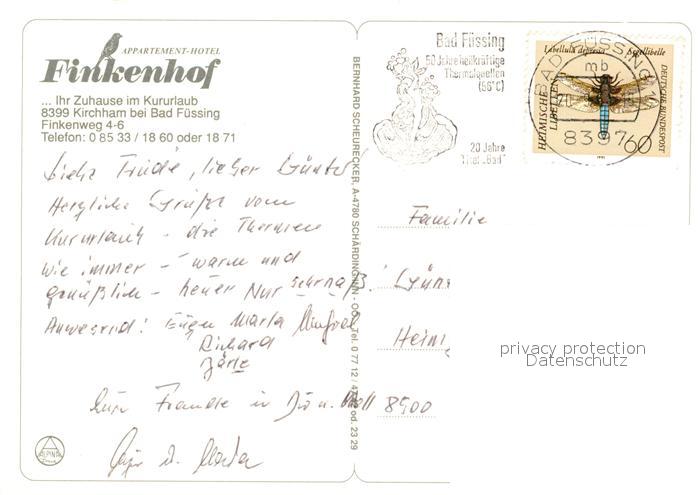 APPARTEMENT-HOTEL
Finkenhof
... Ihr Zuhause im Kururlaub
8399 Kirchham bei Bad Füssing
Finkenweg 4-6
Telefon: 0 85 33 / 18 60 oder 18 71
Liebe Trude, lieber Günter
Herzliche Grüße vom
Kururlaub - die Thermen
wie immer - warm und
genüßlich - heuer nur sehr naß!
Anwesend: Eugen Marla
Richard
Eure Freunde in
ALPINA
BERNHARD SCHEURECKER, A-4780 SCHÄRDING/INN - OÖ., Tel. 0 77 12 / 47 od. 23 29
Bad Füssing
50 Jahre heilkräftige
Thermalquellen
(56°C)
20 Jahre
Titel „Bad"
Libellula depressa Segellibelle
HEIMISCHE LIBELLEN
DEUTSCHE BUNDESPOST
60
1991
BAD FÜSSING 1
mb
8397
Familie
Gün
Heim
8500
privacy protection
Datenschutz